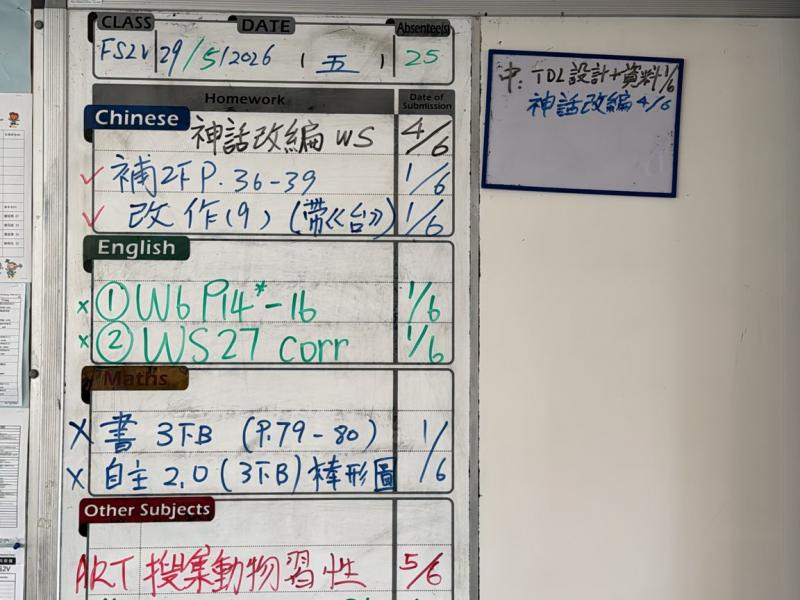 CLASS DATE Absentee(s)
FS2V 29/5/2026 (五) 25
Homework Date of Submission
Chinese
神話改編 WS 4/6
✓ 補2下 P.36-39 1/6
✓ 改作(9) (帶《台》) 1/6
English
× ① W6 P14*-16 1/6
× ② WS27 corr 1/6
Maths
× 書 3下B (P.79-80) 1/6
× 自主 2.0 (3下B) 棒形圖
Other Subjects
ART 搜集動物習性 5/6
中: TDL設計+資料 1/6
神話改編 4/6